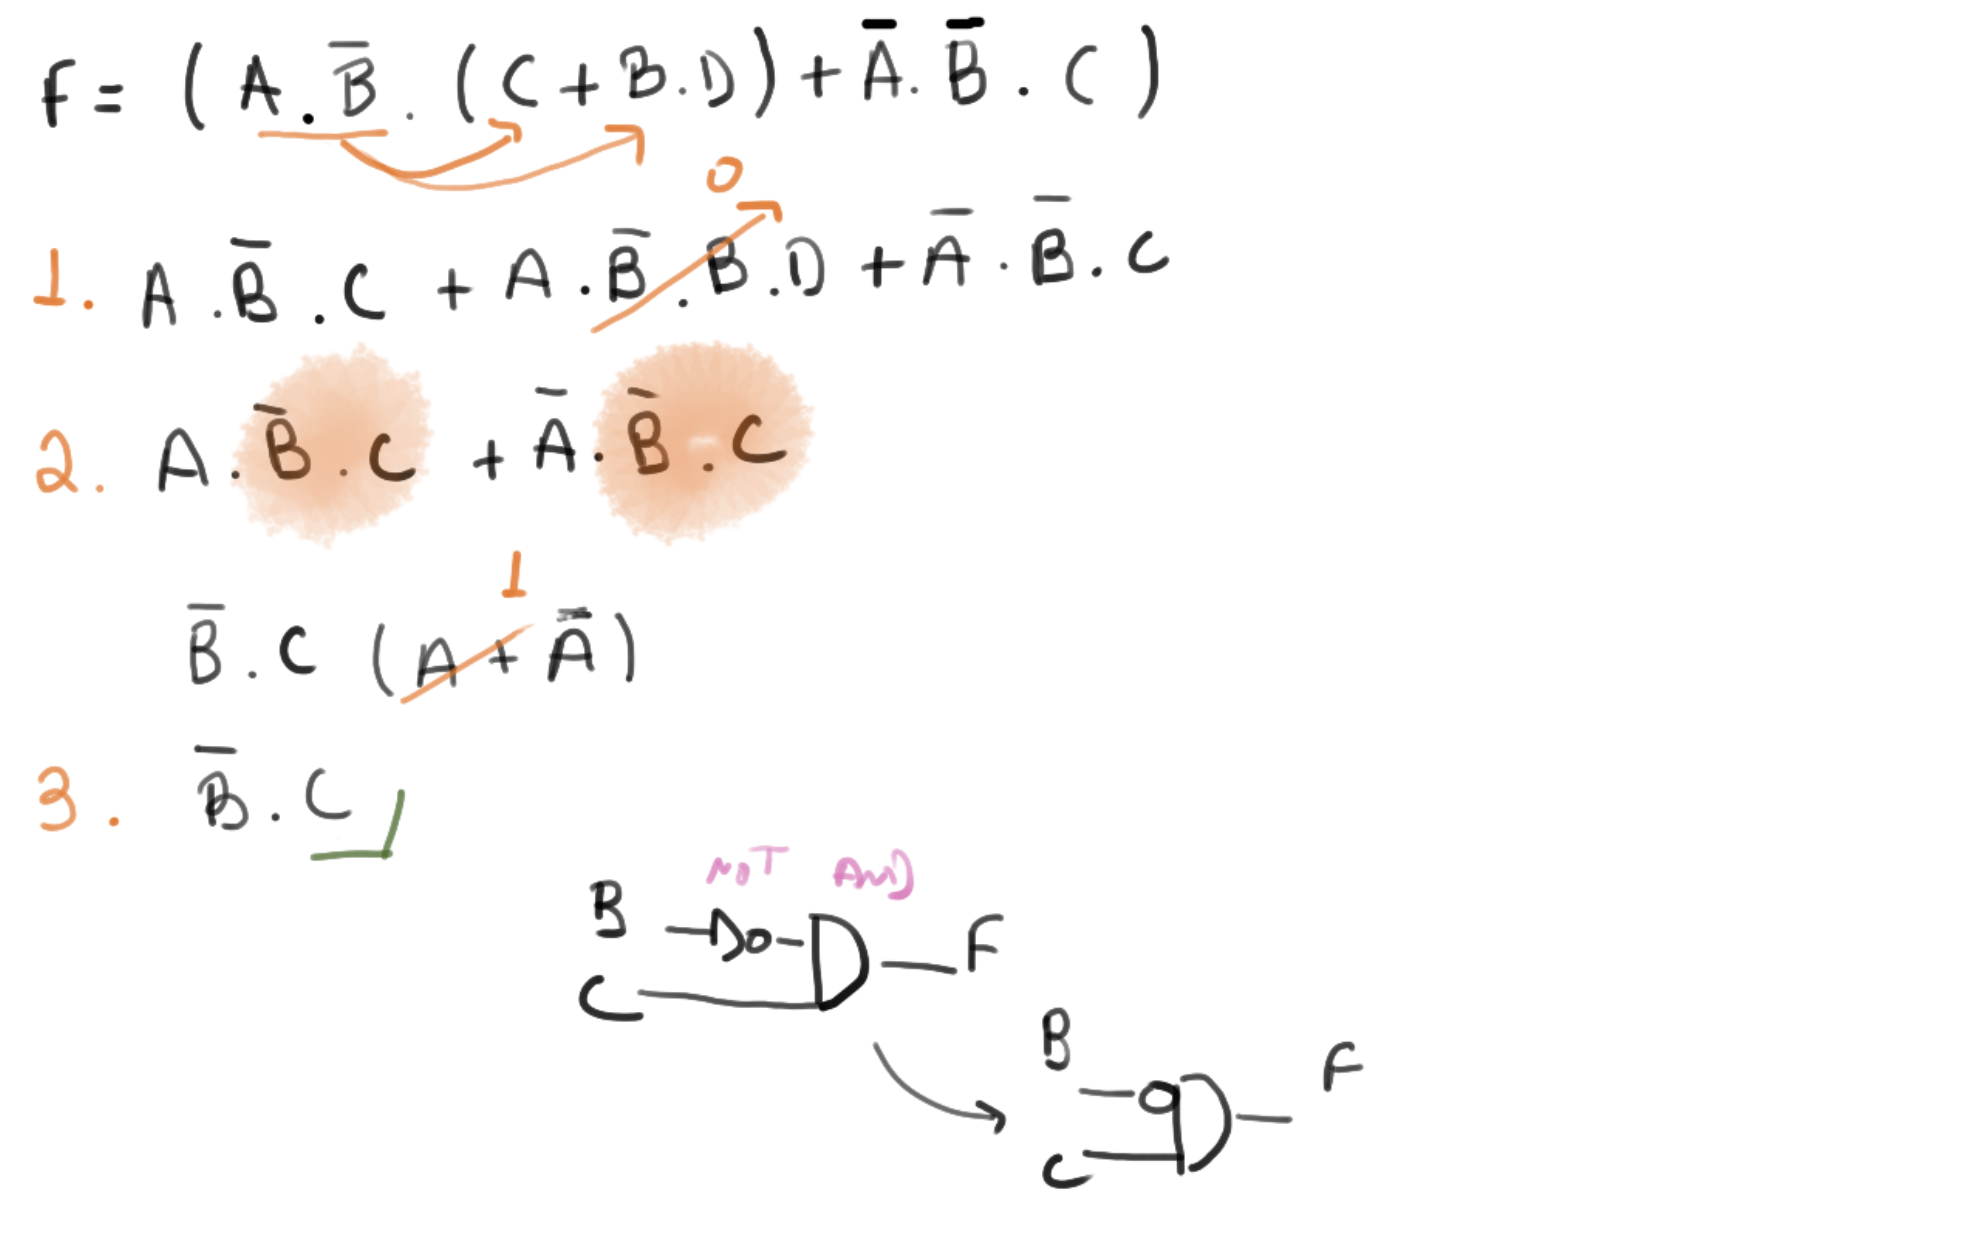 F = (A.B̅.(C+B.D)+A̅.B̅.C)
0
1. A.B̅.C + A.B̅.B.D + A̅.B̅.C
2. A.B̅.C + A̅.B̅.C
1
B̅.C (A+A̅)
3. B̅.C
NOT AND
B F
C
B F
C